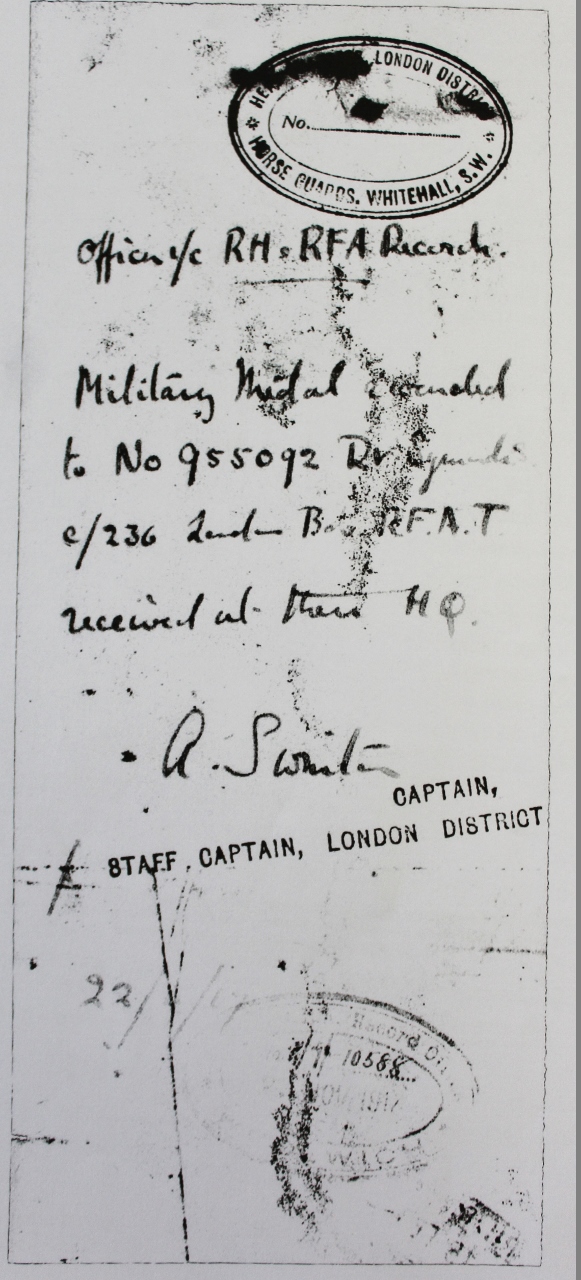 LONDON DISTRICT
No.
HORSE GUARDS. WHITEHALL, S.W.
Officer i/c RH & RFA Records.
Military Medal awarded
to No 955092 Dr
c/236 London Bde RF.A.T
received at these HQ.
A. Swinton
CAPTAIN,
STAFF CAPTAIN, LONDON DISTRICT
22/
Record
10588